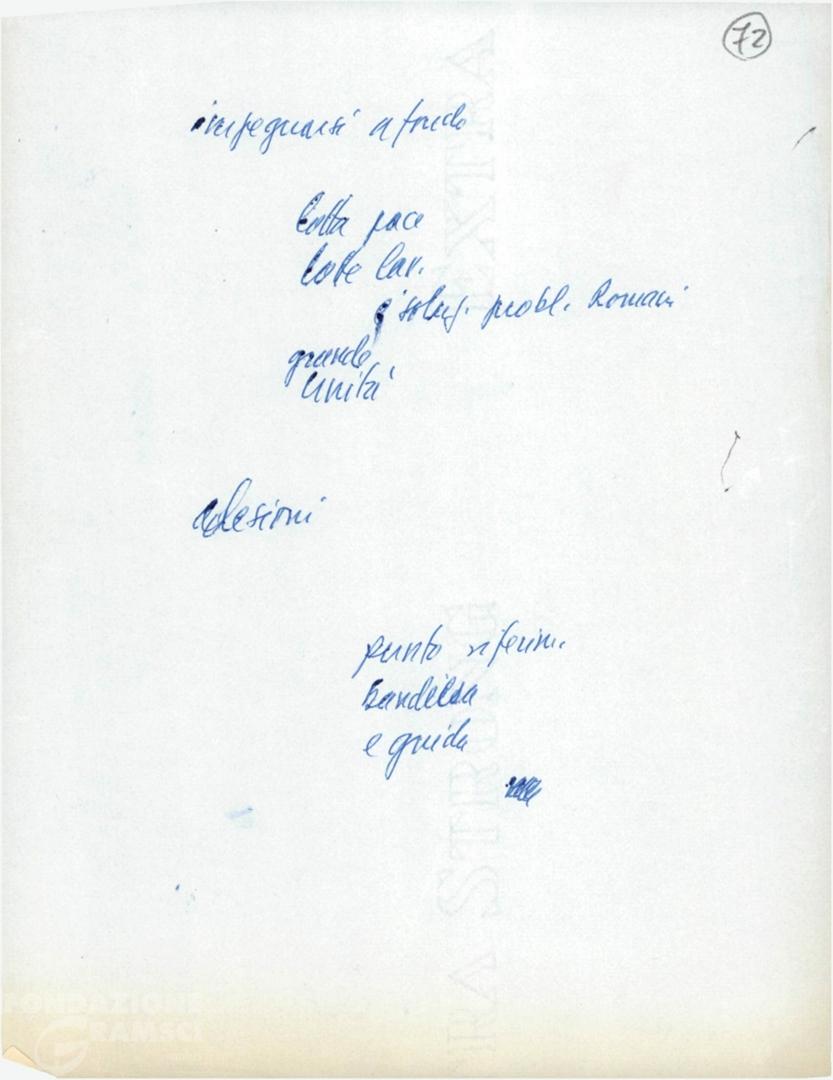 72
impegnarsi a fondo
lotta pace
lotte lav.
e soluz. probl. Romani
grande
unità
adesioni
punto riferim.
bandiera
e guida
FONDAZIONE
GRAMSCI
EXTRA
STRONG